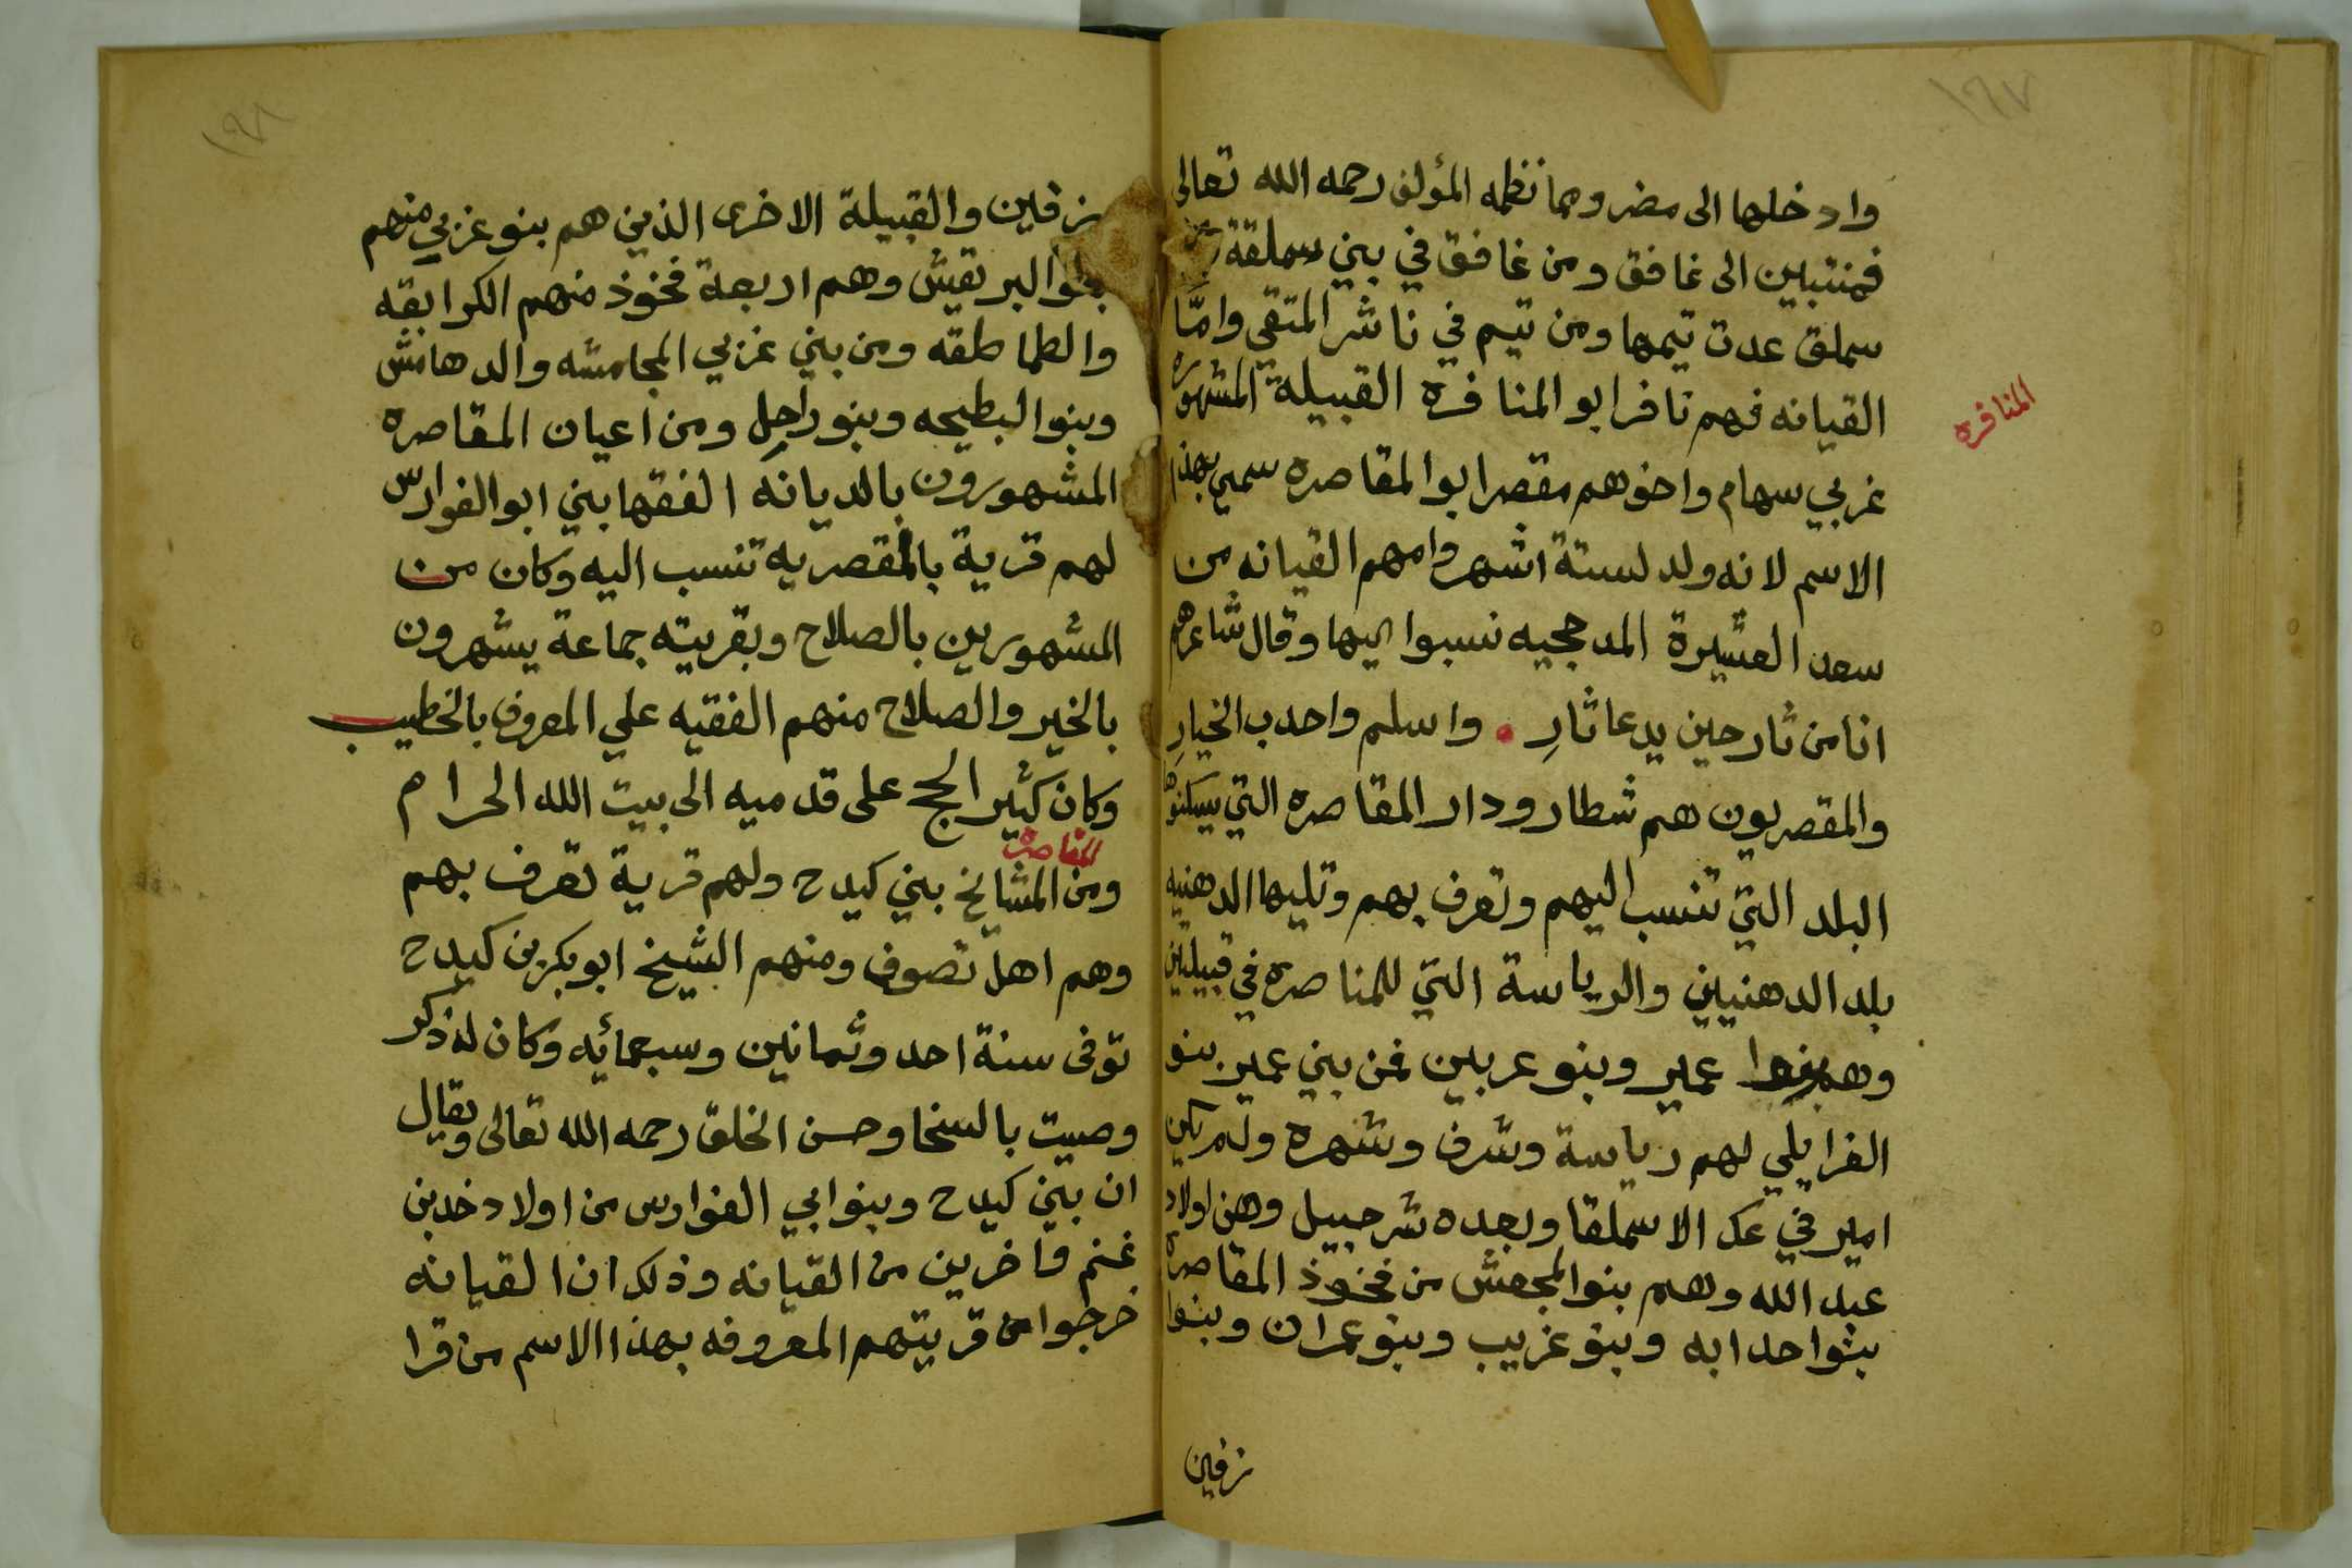 ١٦٧
وادخلها الى مضر ومما نظمه المؤلف رحمه الله تعالى
فمنتبين الى غافق ومن غافق في بني سملقة
سملق عدت تيمها ومن تيم في ناشر المتقي وامّا
القيانه فهم نافر ابو المنافره القبيلة المشهوره
المنافره
غربي سهام واخوهم مقصر ابو المقاصره سمي بهذا
الاسم لانه ولد لستة اشهر وامهم القيانه من
سعد العشيرة المدججيه نسبوا اليها وقال شاعرهم
انا من ثار حين يدعا ثارِ . واسلم واحدب الخيارِ
والمقصريون هم شطار ودار المقاصره التي يسكنوها
البلد التي تنسب اليهم وتعرف بهم وتليها الدهنيه
بلد الدهنيين والرياسة التي للمناصره في قبيلين
وهم بنوا عمير وبنو عربين فمن بني عمير بنو
الغرايلي لهم رياسة وشرف وشهره ولم يكن
امير في عك الا سملقا وبعده شرحبيل وهن اولاد
عبد الله وهم بنو المجعش من فخوذ المقاصره
بنوا حدابه وبنو غريب وبنو عمران وبنوا
زفين
١٦٨
زفين والقبيلة الاخرى الذين هم بنو غربي منهم
بنوا البرتقيش وهم اربعة فخوذ منهم الكرابقه
والطماطقه ومن بني غربي المجامشه والدهامش
وبنوا البطيحه وبنو راجل ومن اعيان المقاصره
المشهورون بالديانه الفقها بني ابو الفوارس
لهم قرية بالمقصريه تنسب اليه وكان من
المشهورين بالصلاح وبقريته جماعة يشهرون
بالخير والصلاح منهم الفقيه علي المعروف بالخطيب
وكان كثير الحج على قدميه الى بيت الله الحرام
المقاصره
ومن المشايخ بني كيدح ولهم قرية تعرف بهم
وهم اهل تصوف ومنهم الشيخ ابو بكر بن كيدح
توفى سنة احد وثمانين وسبعمائه وكان له ذكر
وصيت بالسخا وحسن الخلق رحمه الله تعالى ويقال
ان بني كيدح وبنوابي الفوارس من اولاد خدبن
غنم فاخرين من القيانه وذلك ان القيانه
خرجوا من قريتهم المعروفه بهذا الاسم من قرا